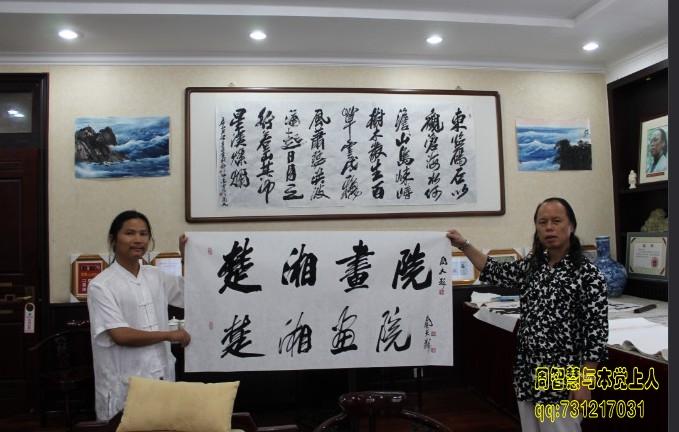 東临碣石以
觀滄海水何
澹山島竦峙
樹木叢生百
草豐茂秋
風蕭瑟洪波
涌起日月之
行若出其中
星漢燦爛
楚湘畫院
楚湘画院
周智慧与本觉上人
qq:731217031